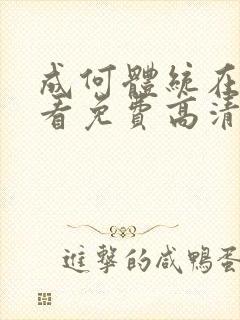 成何體統在
看免費高清
進擊的咸鴨蛋